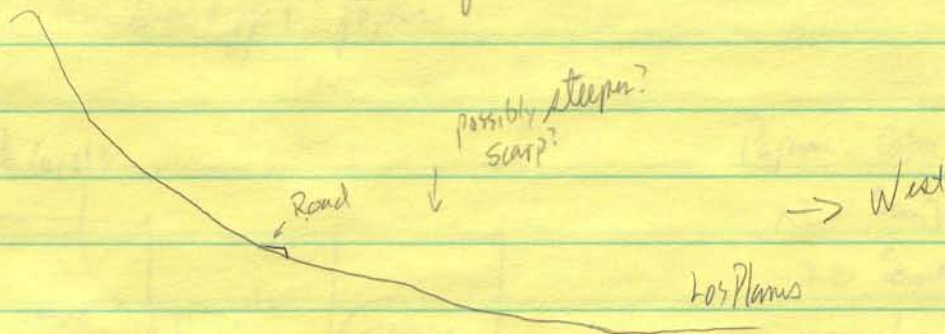 possibly steeper?
scarp?
Road
→ West
Los Planes